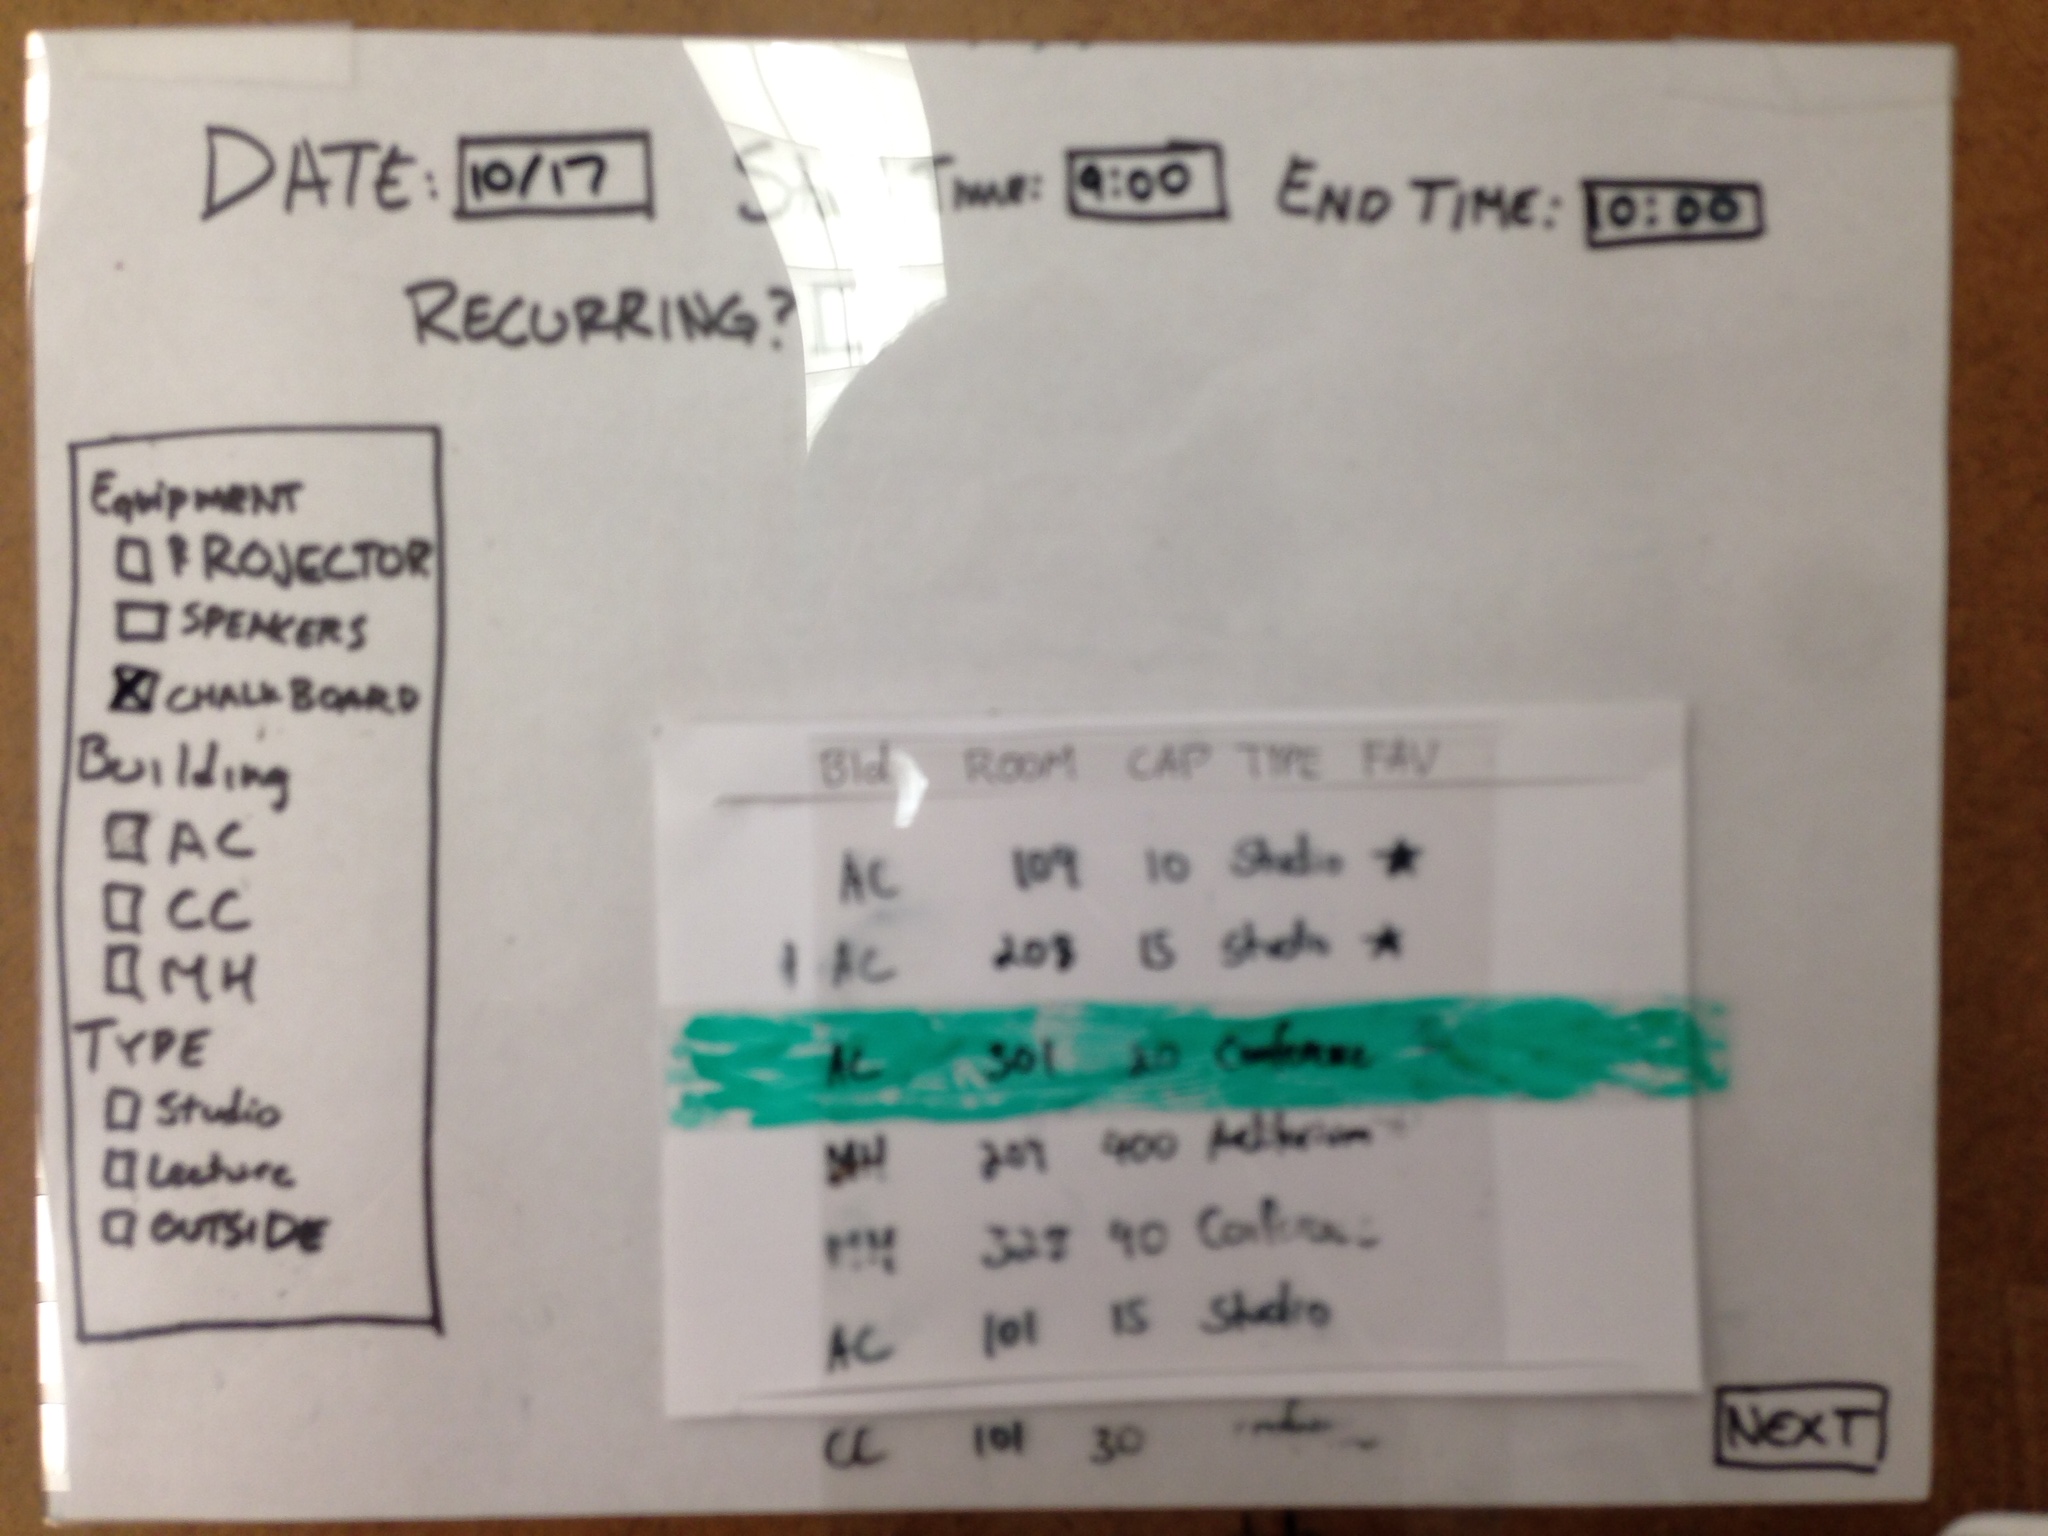 DATE: 10/17 START TIME: 9:00 END TIME: 10:00
RECURRING?
Equipment
PROJECTOR
SPEAKERS
CHALKBOARD
Building
AC
CC
MH
TYPE
Studio
Lecture
OUTSIDE
Bld ROOM CAP TYPE FAV
AC 109 10 Studio ★
AC 208 15 Studio ★
AC 301 20 Conference
MH 207 400 Auditorium
MH 328 90 Conference
AC 101 15 Studio
CC 101 30
NEXT